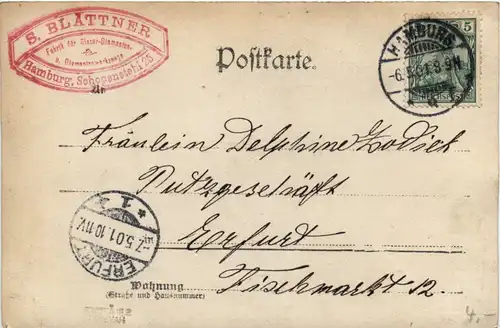 S. BLATTNER
Fabrik für Glaser-Diamanten
u. Diamantwerkzeuge
Hamburg, Schopenstehl 25
Postkarte.
An
HAMBURG
-6.5.01.8-9N.
* 1 *
5
Fräulein Delphine Zodick
Putzgeschäft
Erfurt
Fischmarkt 12.
* 1 *
-7.5.01.10-11V.
ERFURT
in
Wohnung
(Straße und Hausnummer)
4.-